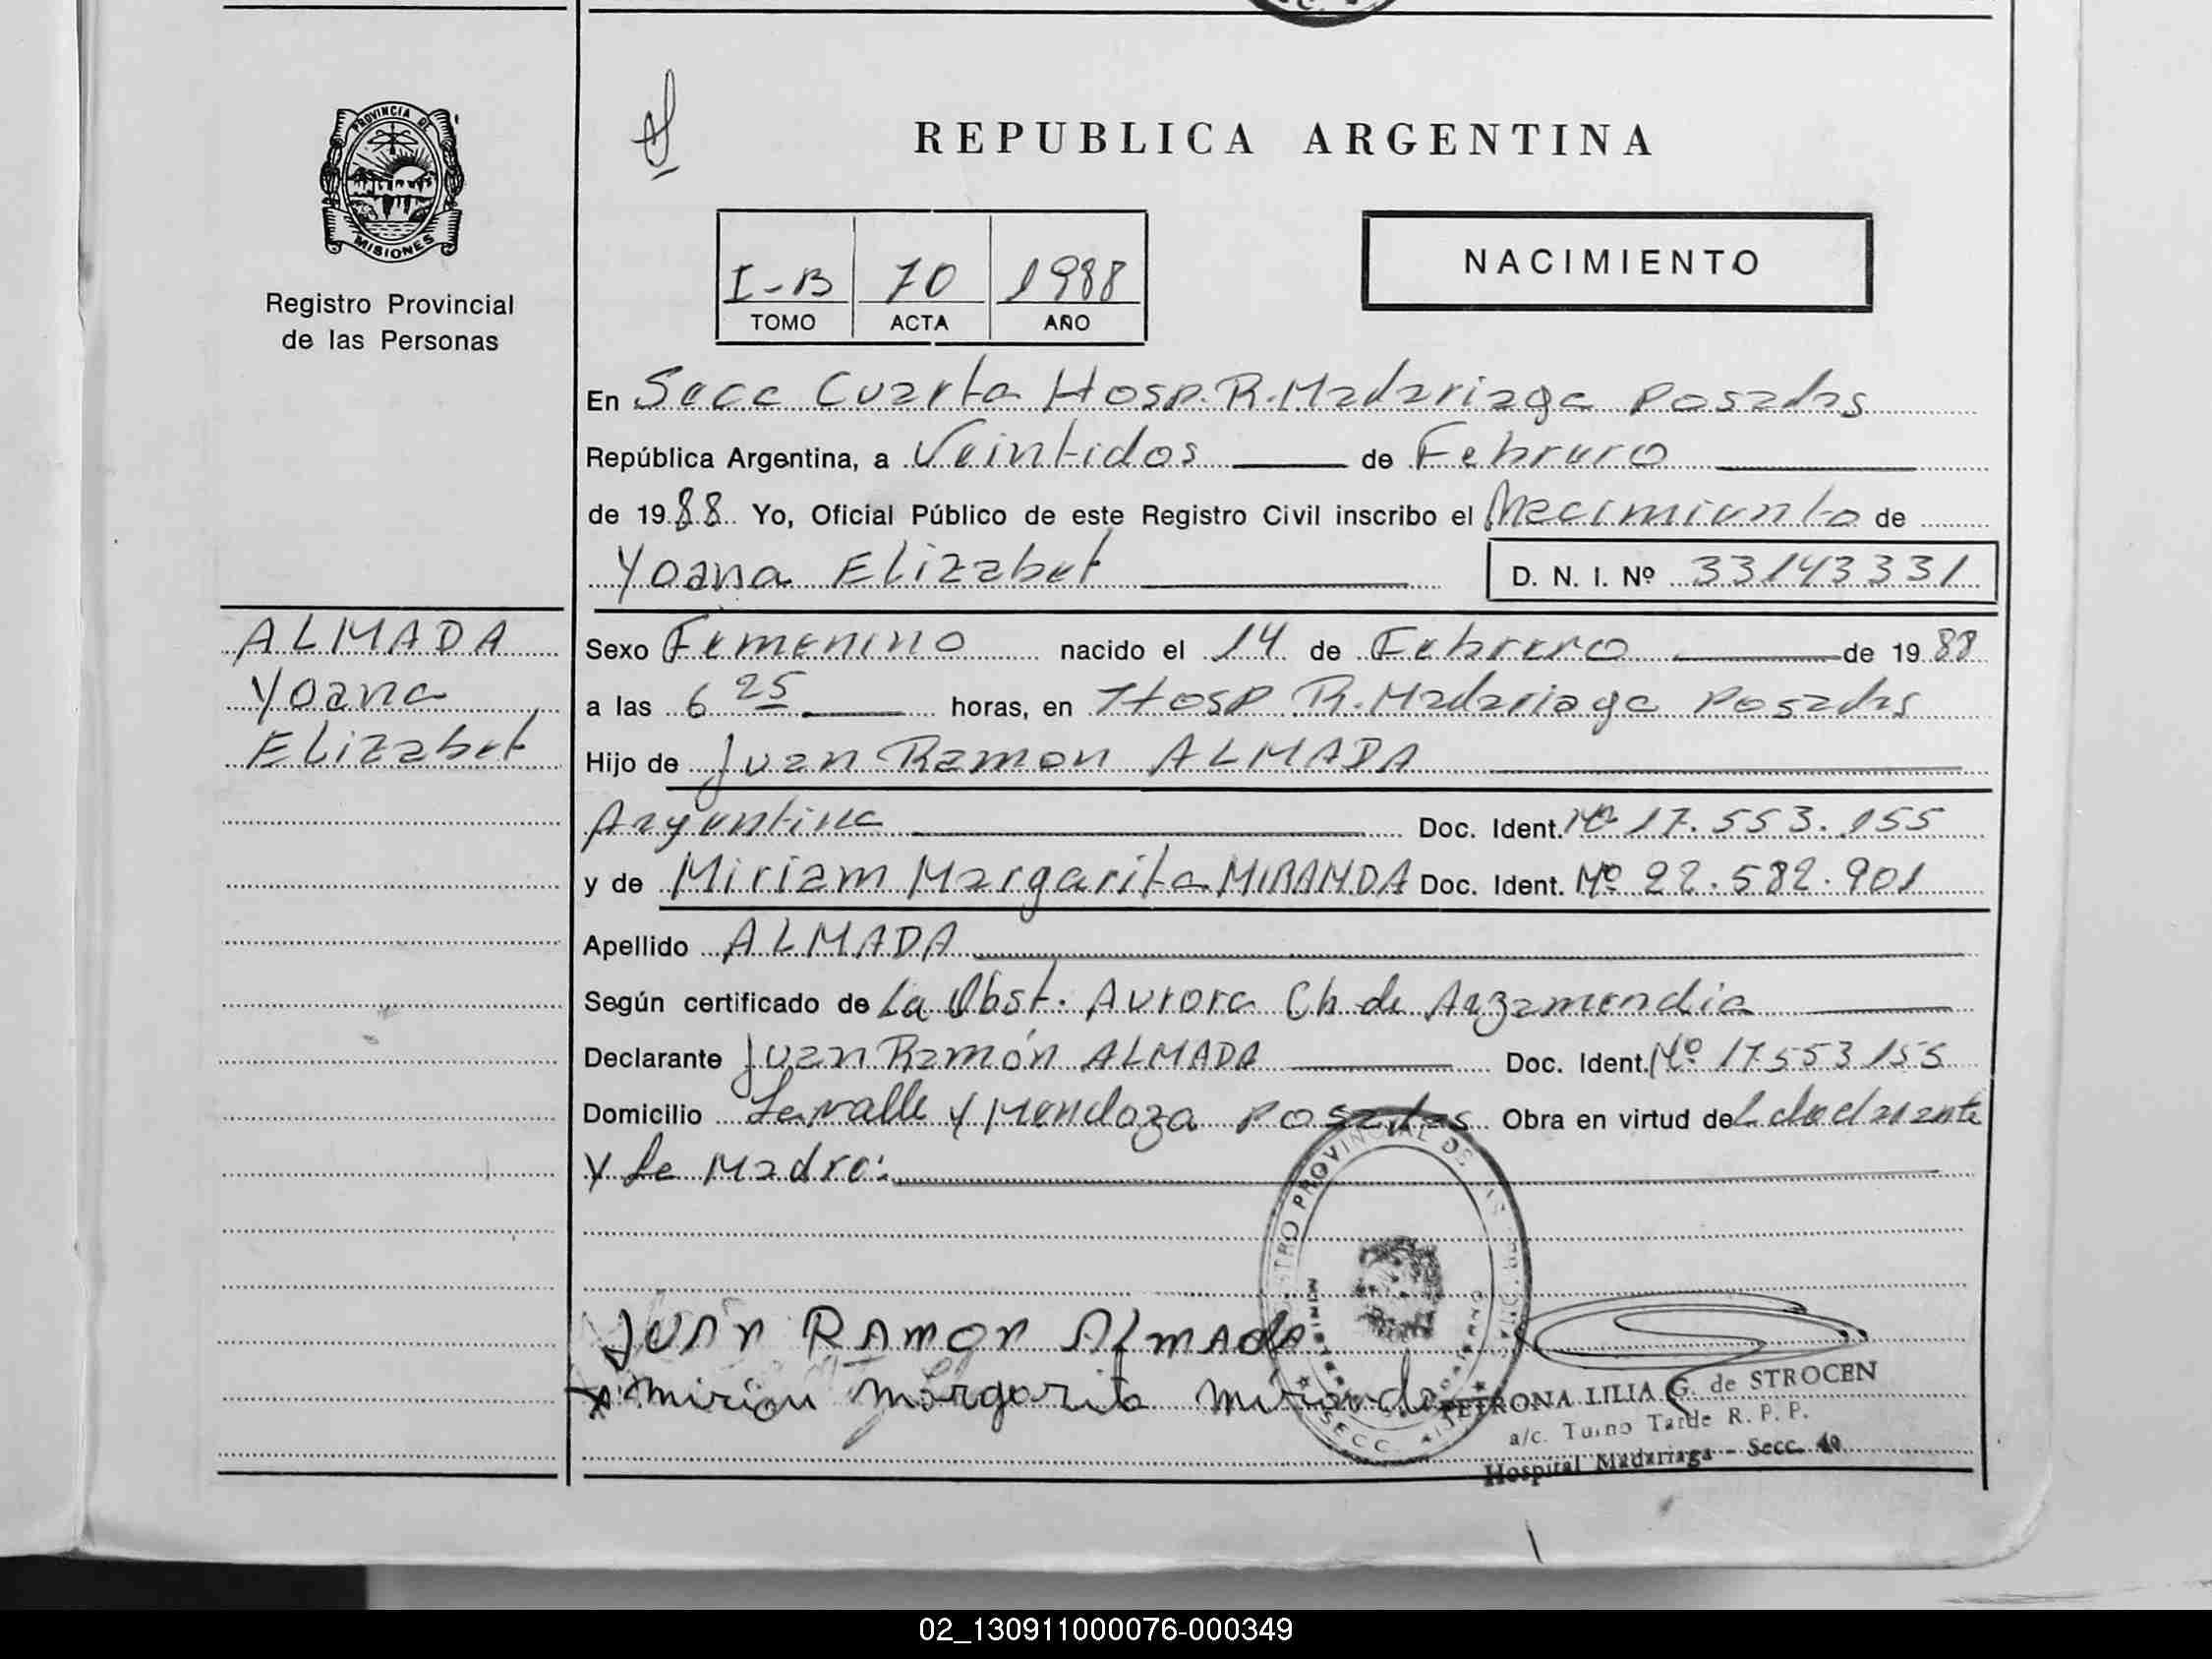 PROVINCIA DE
MISIONES
Registro Provincial
de las Personas
REPUBLICA ARGENTINA
I-B 70 1988
TOMO ACTA AÑO
NACIMIENTO
En Secc Cuarta Hosp. R. Madariaga Posadas
República Argentina, a Veintidos de Febrero
de 1988 Yo, Oficial Público de este Registro Civil inscribo el Nacimiento de
Yoana Elizabet D. N. I. Nº 33143331
ALMADA
Yoana
Elizabet
Sexo Femenino nacido el 14 de Febrero de 1988
a las 6 25 horas, en Hosp R. Madariaga Posadas
Hijo de Juan Ramon ALMADA
Argentina Doc. Ident. Nº 17.553.155
y de Miriam Margarita MIRANDA Doc. Ident. Nº 22.582.901
Apellido ALMADA
Según certificado de La Obst. Aurora Ch de Arzamendia
Declarante Juan Ramón ALMADA Doc. Ident. Nº 17553155
Domicilio Lavalle y Mendoza Posadas Obra en virtud del declarante
y la Madre:
JUAN RAMON ALMADA
Mirian Margarita Miranda
PETRONA LILIA G. de STROCEN
a/c. Turno Tarde R. P. P.
Hospital Madariaga - Secc. 4º
02_130911000076-000349